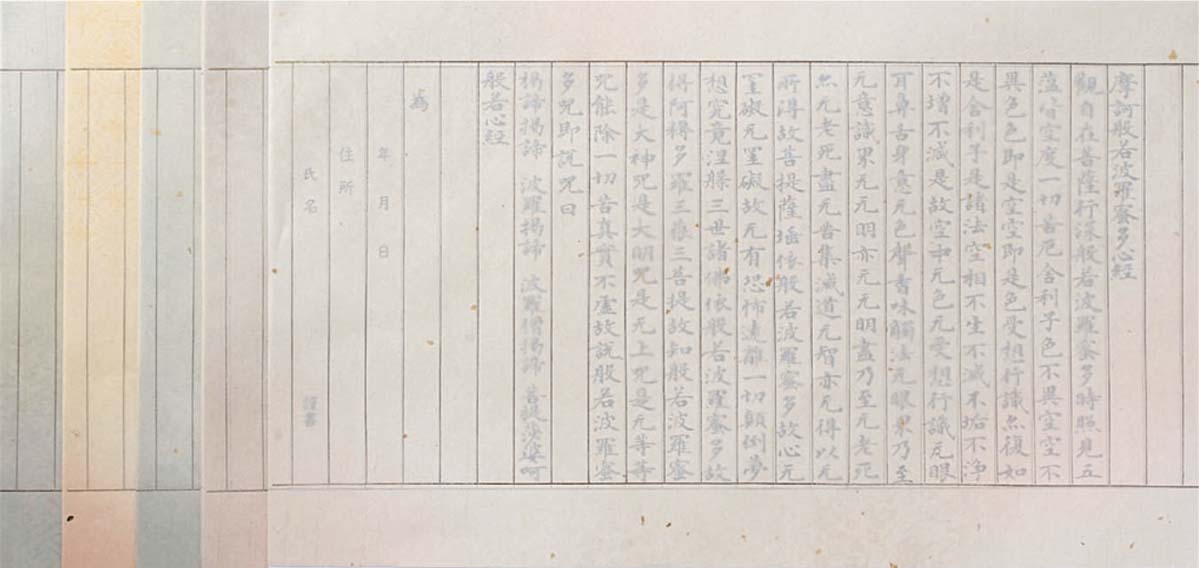 摩訶般若波羅蜜多心經
觀自在菩薩行深般若波羅蜜多時照見五
蘊皆空度一切苦厄舍利子色不異空空不
異色色即是空空即是色受想行識亦復如
是舍利子是諸法空相不生不滅不垢不浄
不増不滅是故空中无色无受想行識无眼
耳鼻舌身意无色聲香味觸法无眼界乃至
无意識界无无明亦无无明盡乃至无老死
亦无老死盡无苦集滅道无智亦无得以无
所得故菩提薩埵依般若波羅蜜多故心无
罣礙无罣礙故无有恐怖遠離一切顛倒夢
想究竟涅槃三世諸佛依般若波羅蜜多故
得阿耨多羅三藐三菩提故知般若波羅蜜
多是大神咒是大明咒是无上咒是无等等
咒能除一切苦真實不虛故說般若波羅蜜
多咒即說咒曰
揭諦揭諦 波羅揭諦 波羅僧揭諦 菩提娑婆呵
般若心経
為
年 月 日
住所
氏名 謹書